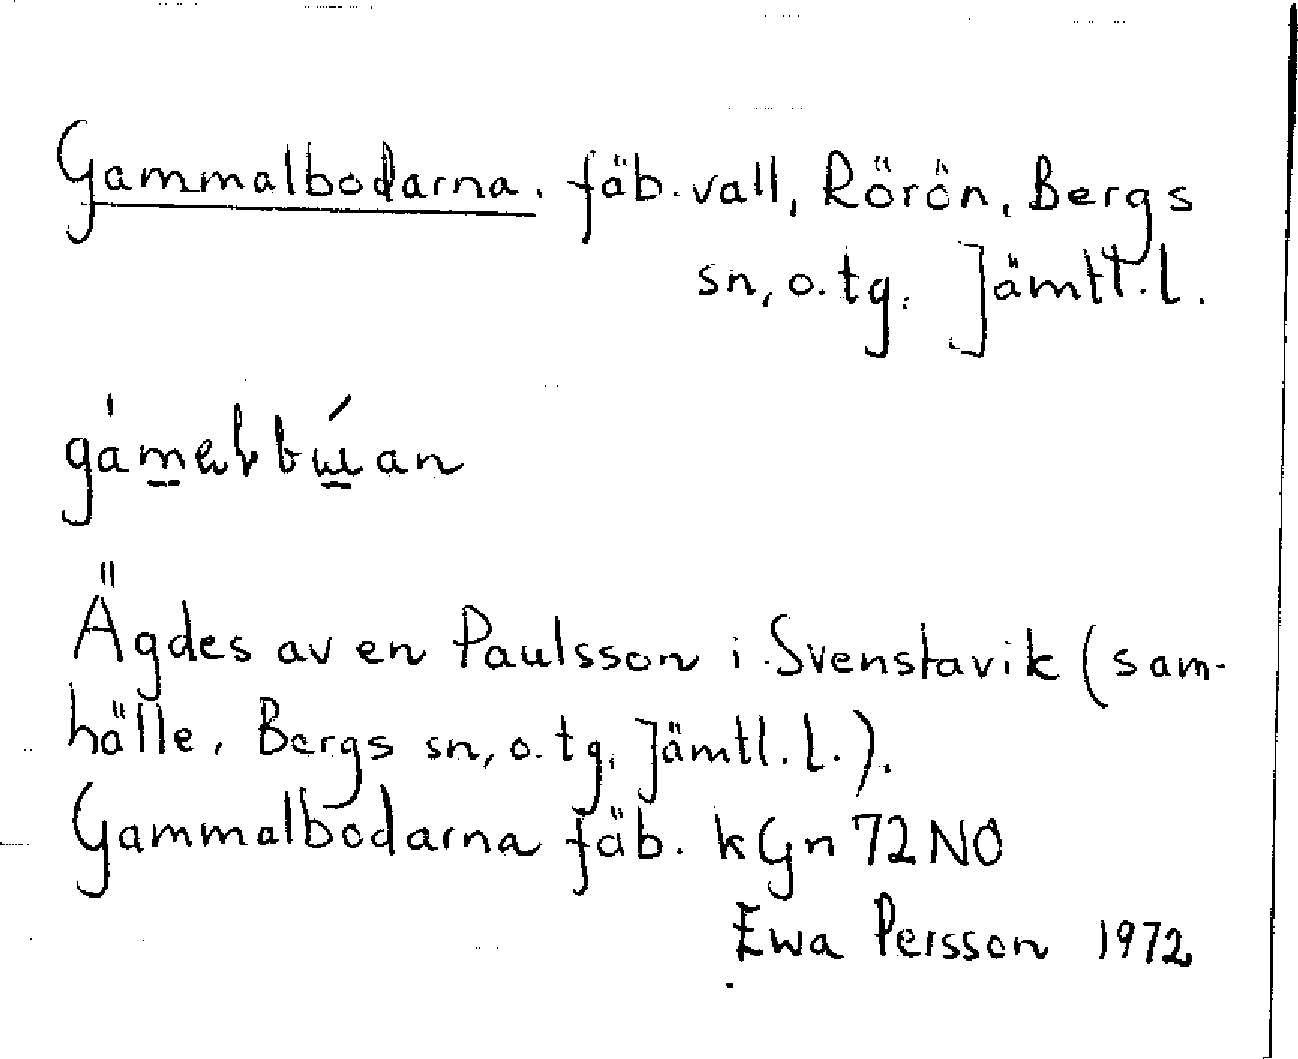 Gammalbodarna. fäb.vall, Rörön, Bergs
sn, o. tg. Jämtl. l.
Ägdes av en Paulsson i Svenstavik (sam-
hälle, Bergs sn, o. tg. Jämtl. l.).
Gammalbodarna fäb. kGn 72 NO
Ewa Persson 1972